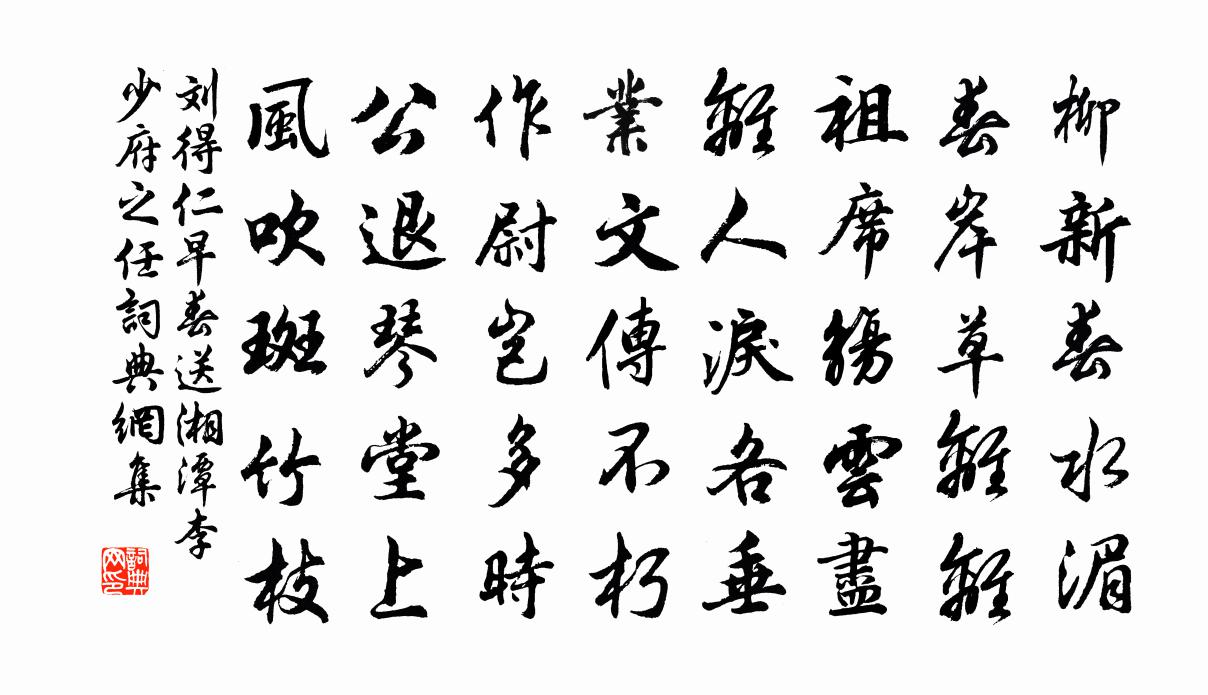 柳新春水湄
春岸草離離
祖席觴雲盡
離人淚各垂
業文傳不朽
作尉豈多時
公退琴堂上
風吹斑竹枝
刘得仁早春送湘潭李
少府之任詞典網集
詞典
网印